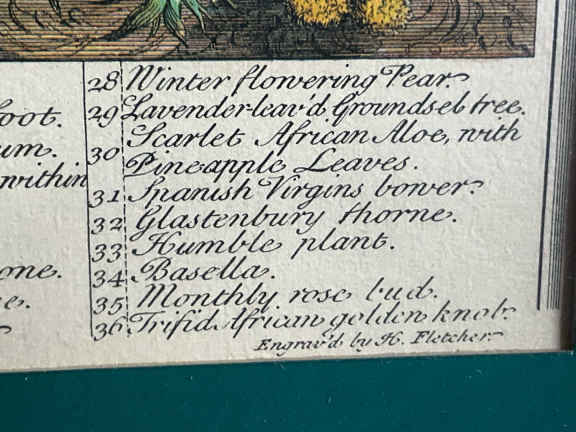 28 Winter flowering Pear.
oot.
29 Lavender-leav'd Groundsel tree.
um.
30 Scarlet African Aloe, with
Pineapple Leaves.
within
31 Spanish Virgins bower.
32 Glastenbury thorne.
33 Humble plant.
one.
34 Basella.
e.
35 Monthly rose bud.
36 Trifid African golden knob.
Engrav'd by H. Fletcher.